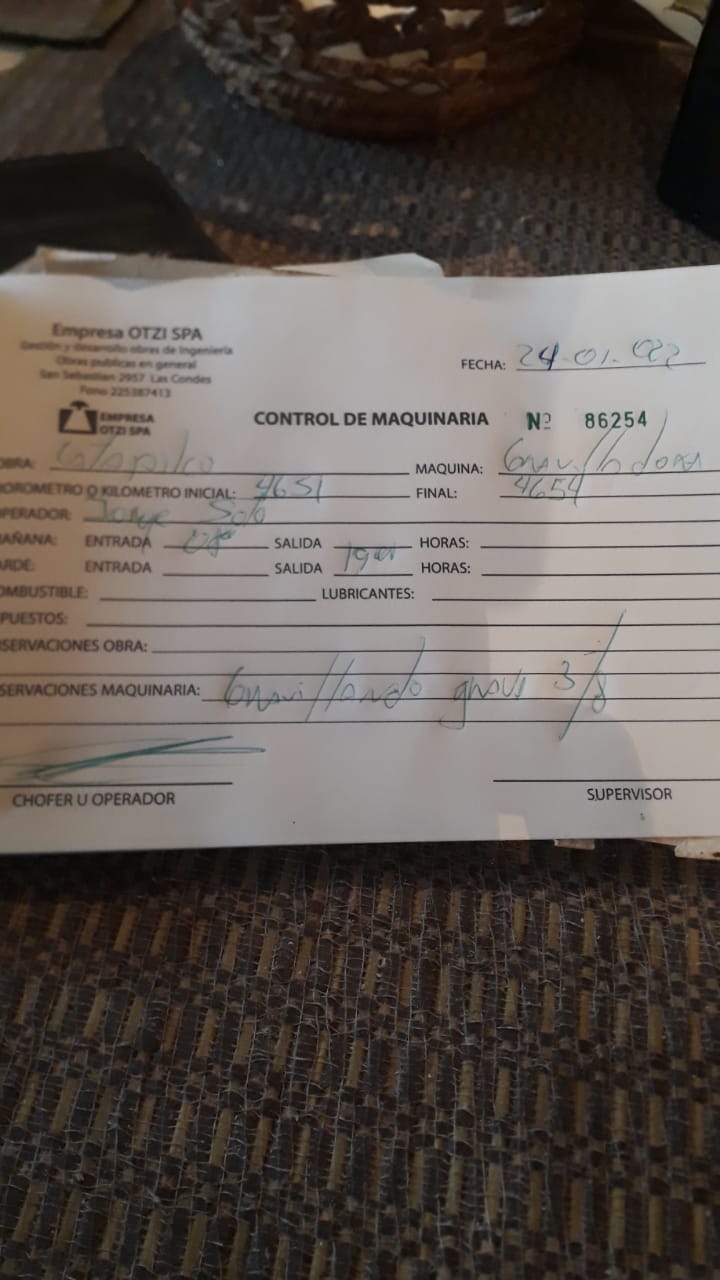 Empresa OTZI SPA
Gestión y desarrollo obras de Ingeniería
Obras publicas en general
San Sebastian 2957 Las Condes
Fono 225387413
FECHA: 24-01-022
EMPRESA
OTZI SPA
CONTROL DE MAQUINARIA Nº 86254
OBRA: Catapilco MAQUINA: Gravilladora
HOROMETRO O KILOMETRO INICIAL: 4651 FINAL: 4654
OPERADOR: Jorge Soto
MAÑANA: ENTRADA 08 SALIDA HORAS:
TARDE: ENTRADA SALIDA 19 HORAS:
COMBUSTIBLE: LUBRICANTES:
PUESTOS:
SERVACIONES OBRA:
SERVACIONES MAQUINARIA: Gravillando 3/8
CHOFER U OPERADOR SUPERVISOR